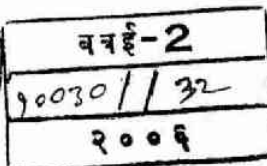 बबई-2
१००३०//32
२००६